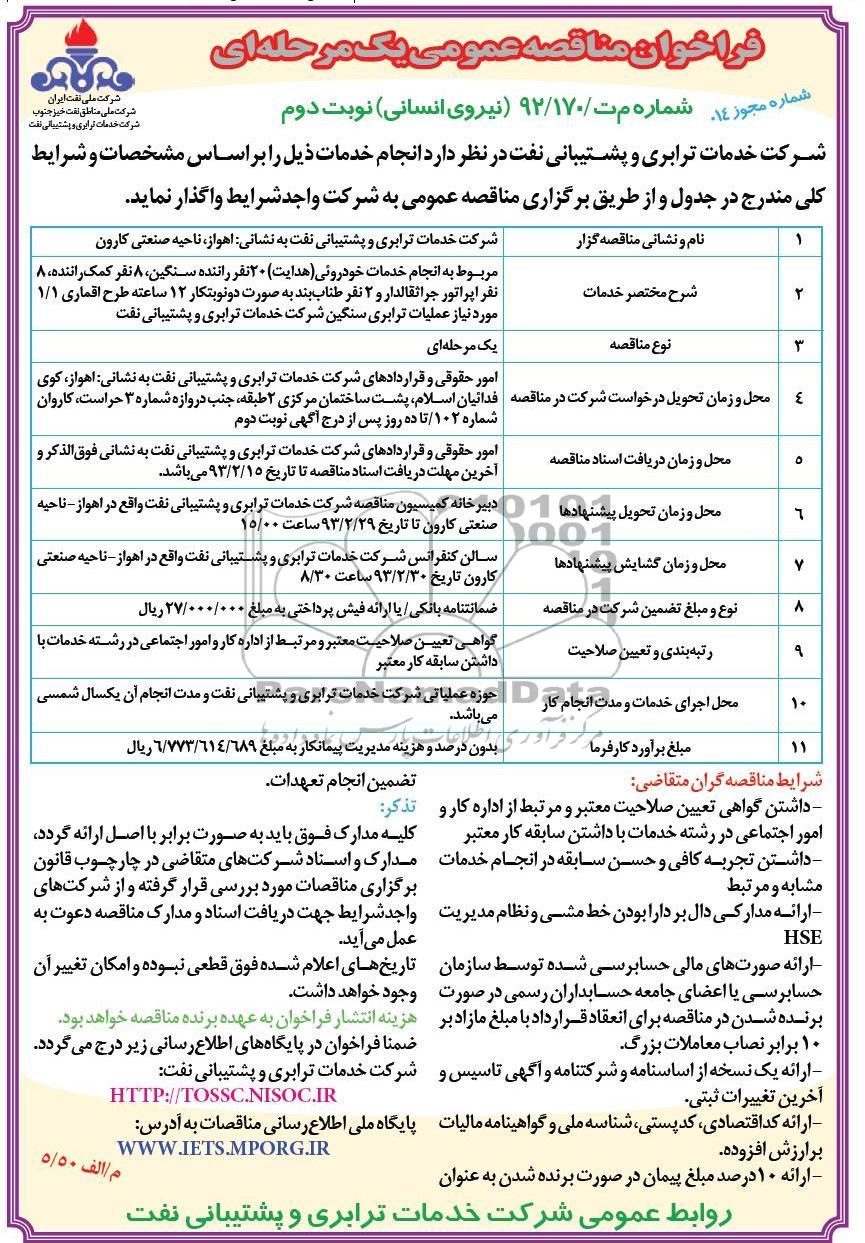 فراخوان مناقصه عمومی یک مرحله‌ای
شرکت ملی نفت ایران
شرکت ملی مناطق نفت خیز جنوب
شرکت خدمات ترابری و پشتیبانی نفت
شماره مجوز ۰۱۴
شماره م‌ت/۹۲/۱۷۰ (نیروی انسانی) نوبت دوم
شرکت خدمات ترابری و پشتیبانی نفت در نظر دارد انجام خدمات ذیل را بر اساس مشخصات و شرایط
کلی مندرج در جدول و از طریق برگزاری مناقصه عمومی به شرکت واجد شرایط واگذار نماید.
۱ نام و نشانی مناقصه‌گزار شرکت خدمات ترابری و پشتیبانی نفت به نشانی: اهواز، ناحیه صنعتی کارون
۲ شرح مختصر خدمات
مربوط به انجام خدمات خودروئی(هدایت) ۲۰نفر راننده سنگین، ۸ نفر کمک راننده، ۸
نفر اپراتور جراثقالدار و ۲ نفر طناب‌بند به صورت دونوبتکار ۱۲ ساعته طرح اقماری ۱/۱
مورد نیاز عملیات ترابری سنگین شرکت خدمات ترابری و پشتیبانی نفت
۳ نوع مناقصه یک مرحله‌ای
۴ محل و زمان تحویل درخواست شرکت در مناقصه
امور حقوقی و قراردادهای شرکت خدمات ترابری و پشتیبانی نفت به نشانی: اهواز، کوی
فدائیان اسلام، پشت ساختمان مرکزی ۲طبقه، جنب دروازه شماره ۳ حراست، کاروان
شماره ۱۰۲/تا ده روز پس از درج آگهی نوبت دوم
۵ محل و زمان دریافت اسناد مناقصه
امور حقوقی و قراردادهای شرکت خدمات ترابری و پشتیبانی نفت به نشانی فوق‌الذکر و
آخرین مهلت دریافت اسناد مناقصه تا تاریخ ۹۳/۲/۱۵ می‌باشد.
۶ محل و زمان تحویل پیشنهادها
دبیرخانه کمیسیون مناقصه شرکت خدمات ترابری و پشتیبانی نفت واقع در اهواز-ناحیه
صنعتی کارون تا تاریخ ۹۳/۲/۲۹ ساعت ۱۵/۰۰
۷ محل و زمان گشایش پیشنهادها
سالن کنفرانس شرکت خدمات ترابری و پشتیبانی نفت واقع در اهواز-ناحیه صنعتی
کارون تاریخ ۹۳/۲/۳۰ ساعت ۸/۳۰
۸ نوع و مبلغ تضمین شرکت در مناقصه ضمانتنامه بانکی/ یا ارائه فیش پرداختی به مبلغ ۲۷/۰۰۰/۰۰۰ ریال
۹ رتبه‌بندی و تعیین صلاحیت
گواهی تعیین صلاحیت معتبر و مرتبط از اداره کار و امور اجتماعی در رشته خدمات با
داشتن سابقه کار معتبر
۱۰ محل اجرای خدمات و مدت انجام کار
حوزه عملیاتی شرکت خدمات ترابری و پشتیبانی نفت و مدت انجام آن یکسال شمسی
می‌باشد.
۱۱ مبلغ برآورد کارفرما بدون درصد و هزینه مدیریت پیمانکار به مبلغ ۶/۷۷۳/۶۱۴/۶۸۹ ریال
ParsNamadData
مرکز فرآوری اطلاعات پارس نماد داده‌ها
شرایط مناقصه‌گران متقاضی:
-داشتن گواهی تعیین صلاحیت معتبر و مرتبط از اداره کار و
امور اجتماعی در رشته خدمات با داشتن سابقه کار معتبر
-داشتن تجربه کافی و حسن سابقه در انجام خدمات
مشابه و مرتبط
-ارائه مدارکی دال بر دارا بودن خط مشی و نظام مدیریت
HSE
-ارائه صورت‌های مالی حسابرسی شده توسط سازمان
حسابرسی یا اعضای جامعه حسابداران رسمی در صورت
برنده شدن در مناقصه برای انعقاد قرارداد با مبلغ مازاد بر
۱۰ برابر نصاب معاملات بزرگ.
-ارائه یک نسخه از اساسنامه و شرکتنامه و آگهی تاسیس و
آخرین تغییرات ثبتی.
-ارائه کداقتصادی، کدپستی، شناسه ملی و گواهینامه مالیات
بر ارزش افزوده.
-ارائه ۱۰درصد مبلغ پیمان در صورت برنده شدن به عنوان
تضمین انجام تعهدات.
تذکر:
کلیه مدارک فوق باید به صورت برابر با اصل ارائه گردد،
مدارک و اسناد شرکت‌های متقاضی در چارچوب قانون
برگزاری مناقصات مورد بررسی قرار گرفته و از شرکت‌های
واجدشرایط جهت دریافت اسناد و مدارک مناقصه دعوت به
عمل می‌آید.
تاریخ‌های اعلام شده فوق قطعی نبوده و امکان تغییر آن
وجود خواهد داشت.
هزینه انتشار فراخوان به عهده برنده مناقصه خواهد بود.
ضمنا فراخوان در پایگاه‌های اطلاع‌رسانی زیر درج می‌گردد.
شرکت خدمات ترابری و پشتیبانی نفت:
HTTP://TOSSC.NISOC.IR
پایگاه ملی اطلاع‌رسانی مناقصات به آدرس:
WWW.IETS.MPORG.IR
م/الف ۵/۵۰
روابط عمومی شرکت خدمات ترابری و پشتیبانی نفت